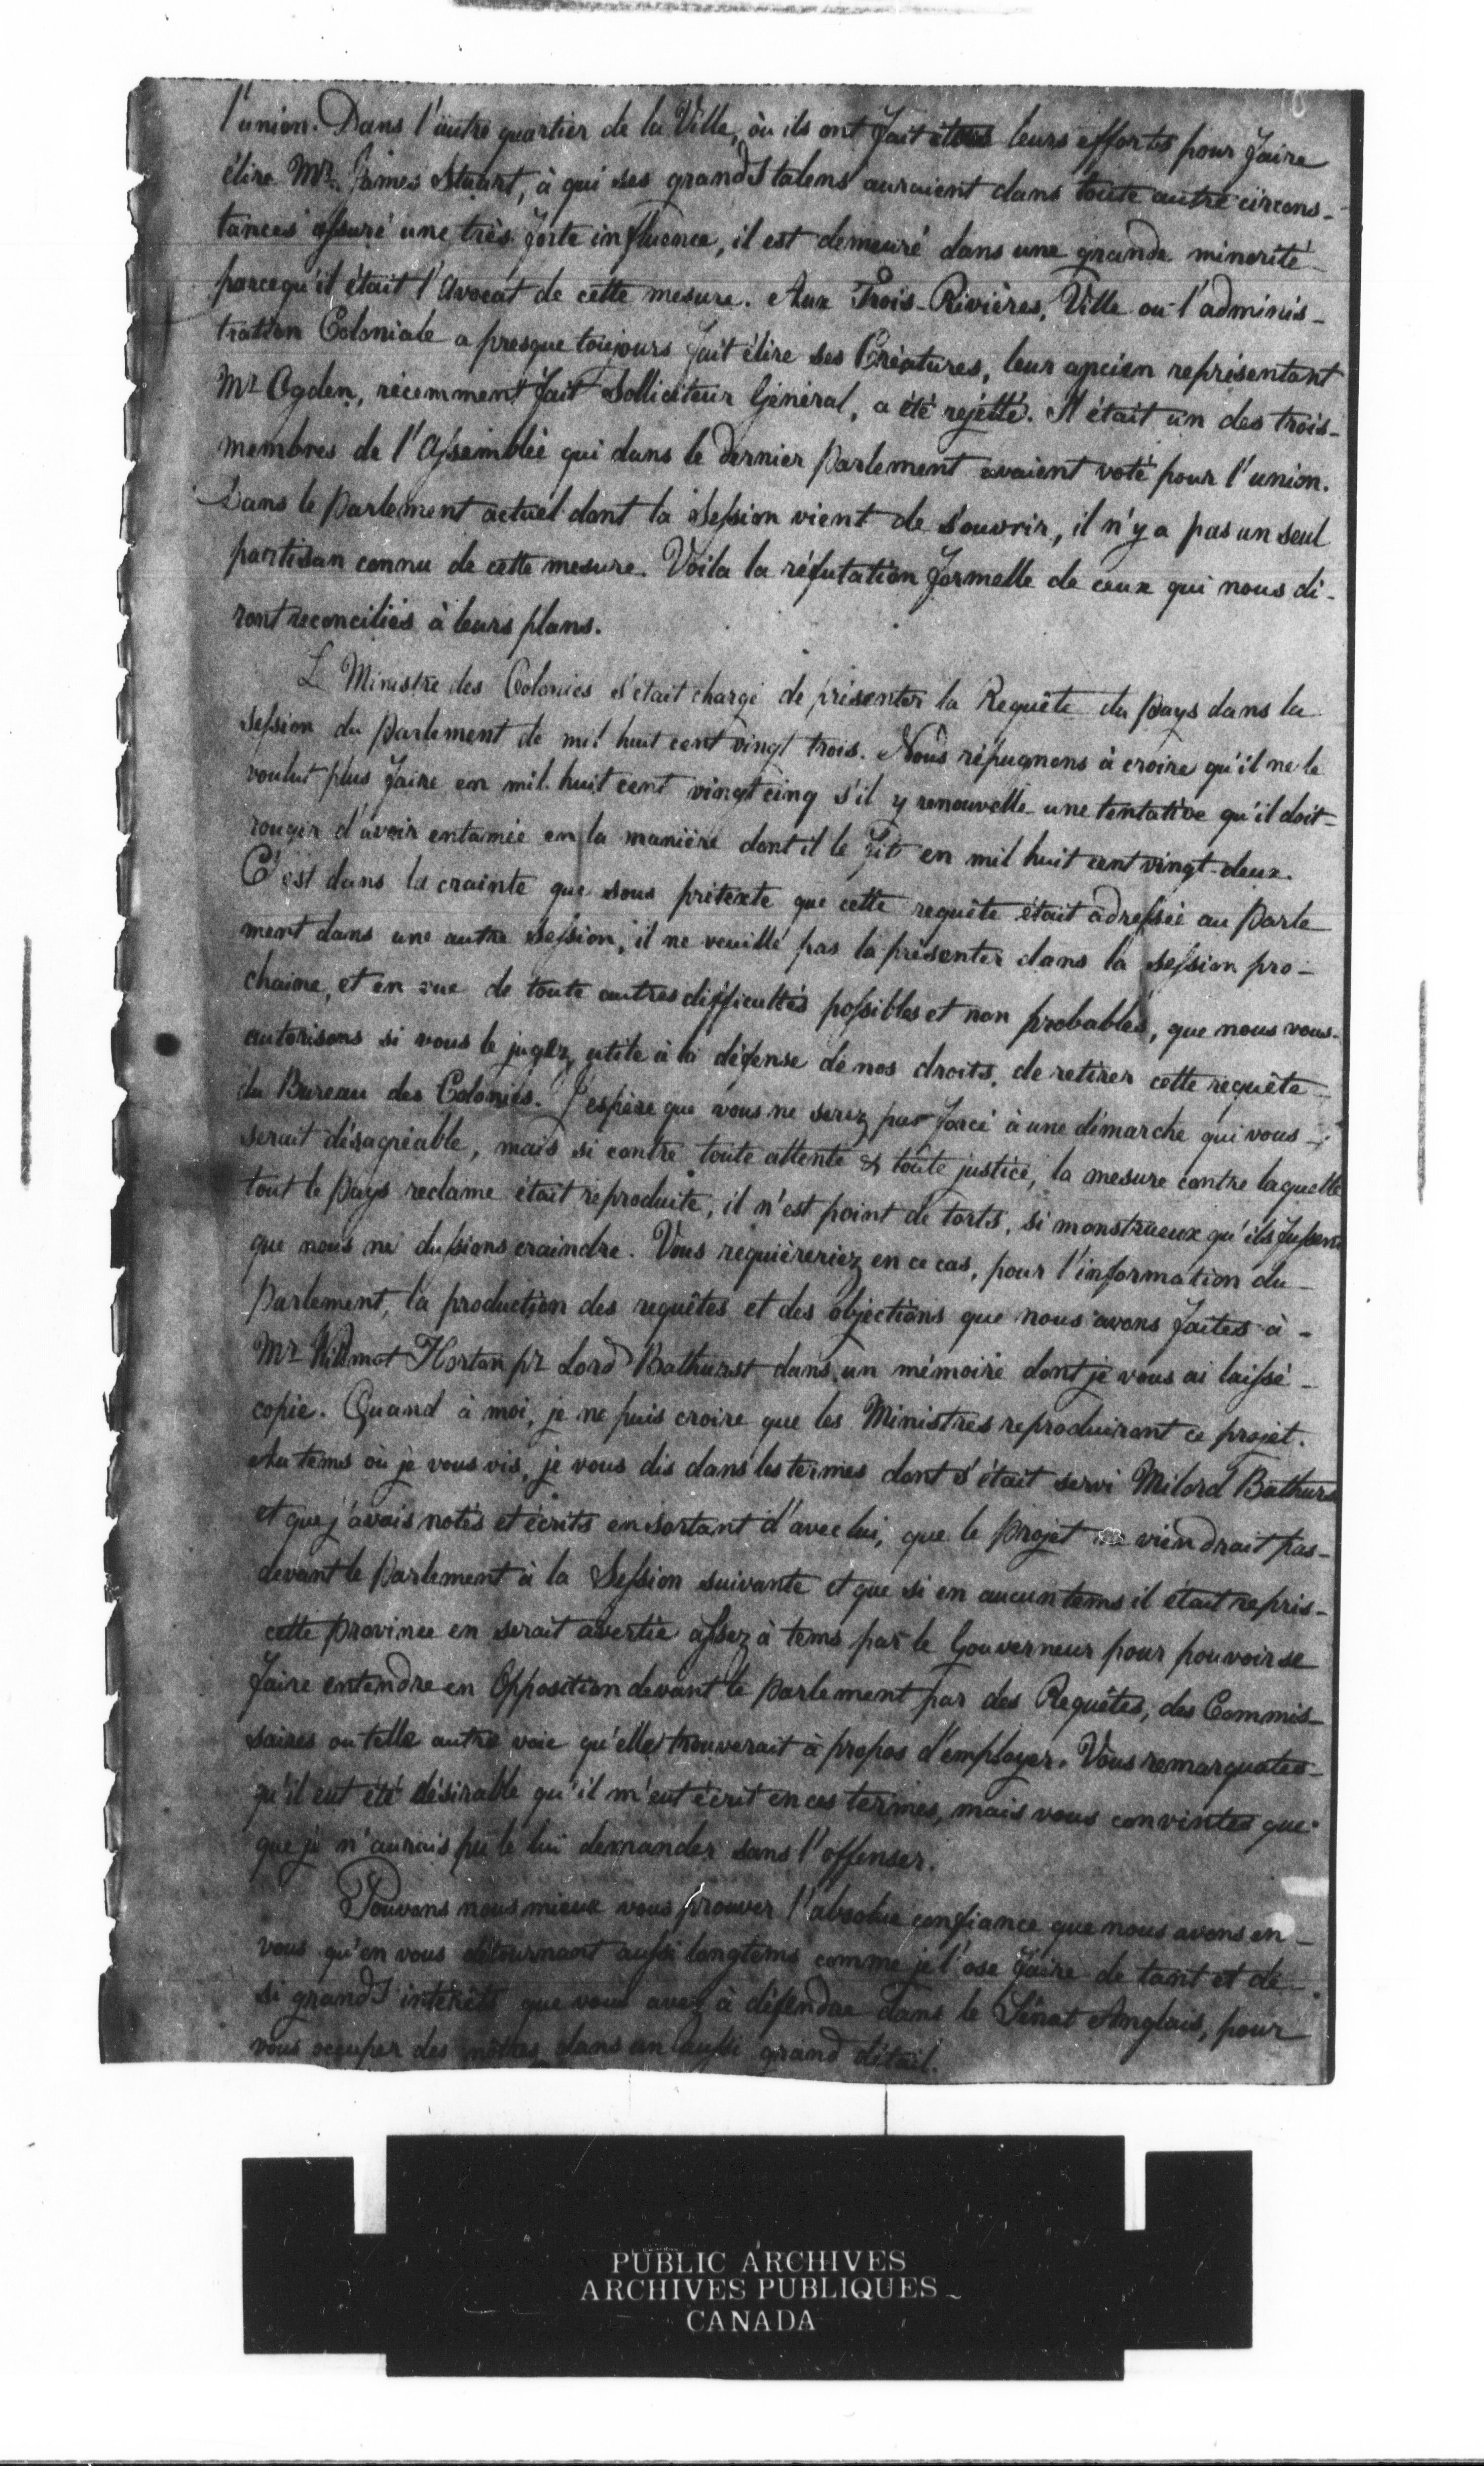 10
l'union. Dans l'autre quartier de la Ville, où ils ont fait leurs efforts pour faire
élire Mr. James Stuart, à qui ses grands talens auraient dans toute autre circons-
tances assuré une très forte influence, il est demeuré dans une grande minorité
parcequ'il était l'Avocat de cette mesure. Aux Trois-Rivières, Ville ou l'adminis-
tration Coloniale a presque toujours fait élire ses Créatures, leur ancien représentant
Mr Ogden, récemment fait Solliciteur Général, a été rejetté. Il était un des trois-
membres de l'Assemblée qui dans le dernier Parlement avaient voté pour l'union.
Dans le Parlement actuel dont la Session vient de s'ouvrir, il n'y a pas un seul
partisan connu de cette mesure. Voila la réfutation formelle de ceux qui nous di-
ront reconciliés à leurs plans.
L Ministre des Colonies s'était chargé de présenter la Requête du Pays dans la
Session du Parlement de mil huit cent vingt trois. Nous répugnons à croire qu'il ne le
voulut plus faire en mil huit cent vingt cinq s'il y renouvelle une tentative qu'il doit-
rougir d'avoir entamée en la manière dont il le fit en mil huit cent vingt-deux.
C'est dans la crainte que sous prétexte que cette requête était adressée au Parle
ment dans une autre Session, il ne veuille pas la présenter dans la Session pro-
chaine, et en vue de toute autres difficultés possibles et non probables, que nous vous-
autorisons si vous le jugez utile à la défense de nos droits, de retirer cette requête-
du Bureau des Colonies. J'espère que vous ne serez pas forcé à une démarche qui vous-
serait désagréable, mais si contre toute attente & toute justice, la mesure contre laquelle
tout le Pays reclame était reproduite, il n'est point de torts, si monstrueux qu'ils fussent
que nous ne dussions craindre. Vous requièreriez en ce cas, pour l'information du-
Parlement, la production des requêtes et des objections que nous avons faites à-
Mr Wilmot Horton pr Lord Bathurst dans un mémoire dont je vous ai laissé-
copie. Quand à moi, je ne puis croire que les Ministres reproduiront ce projet.
Au tems où je vous vis, je vous dis dans les termes dont s'était servi Milord Bathurst
et que j'avais notés et écrits en sortant d'avec lui, que le Projet ne viendrait pas-
devant le Parlement à la Session suivante et que si en aucun tems il était repris-
cette Province en serait avertie assez à tems par le Gouverneur pour pouvoir se
faire entendre en Opposition devant le Parlement par des Requêtes, des Commis-
saires ou telle autre voie qu'elle trouverait à propos d'employer. Vous remarquates-
qu'il eut été désirable qu'il m'eut écrit en ces termes, mais vous convintes que
que je n'aurais pu le lui demander sans l'offenser.
Pouvons nous mieux vous prouver l'absolue confiance que nous avons en-
vous qu'en vous détournant aussi longtems comme je l'ose faire de tant et de-
si grands interêts que vous avez à défendre dans le Sénat Anglais, pour
vous occuper des nôtres dans un aussi grand détail.
PUBLIC ARCHIVES
ARCHIVES PUBLIQUES
CANADA